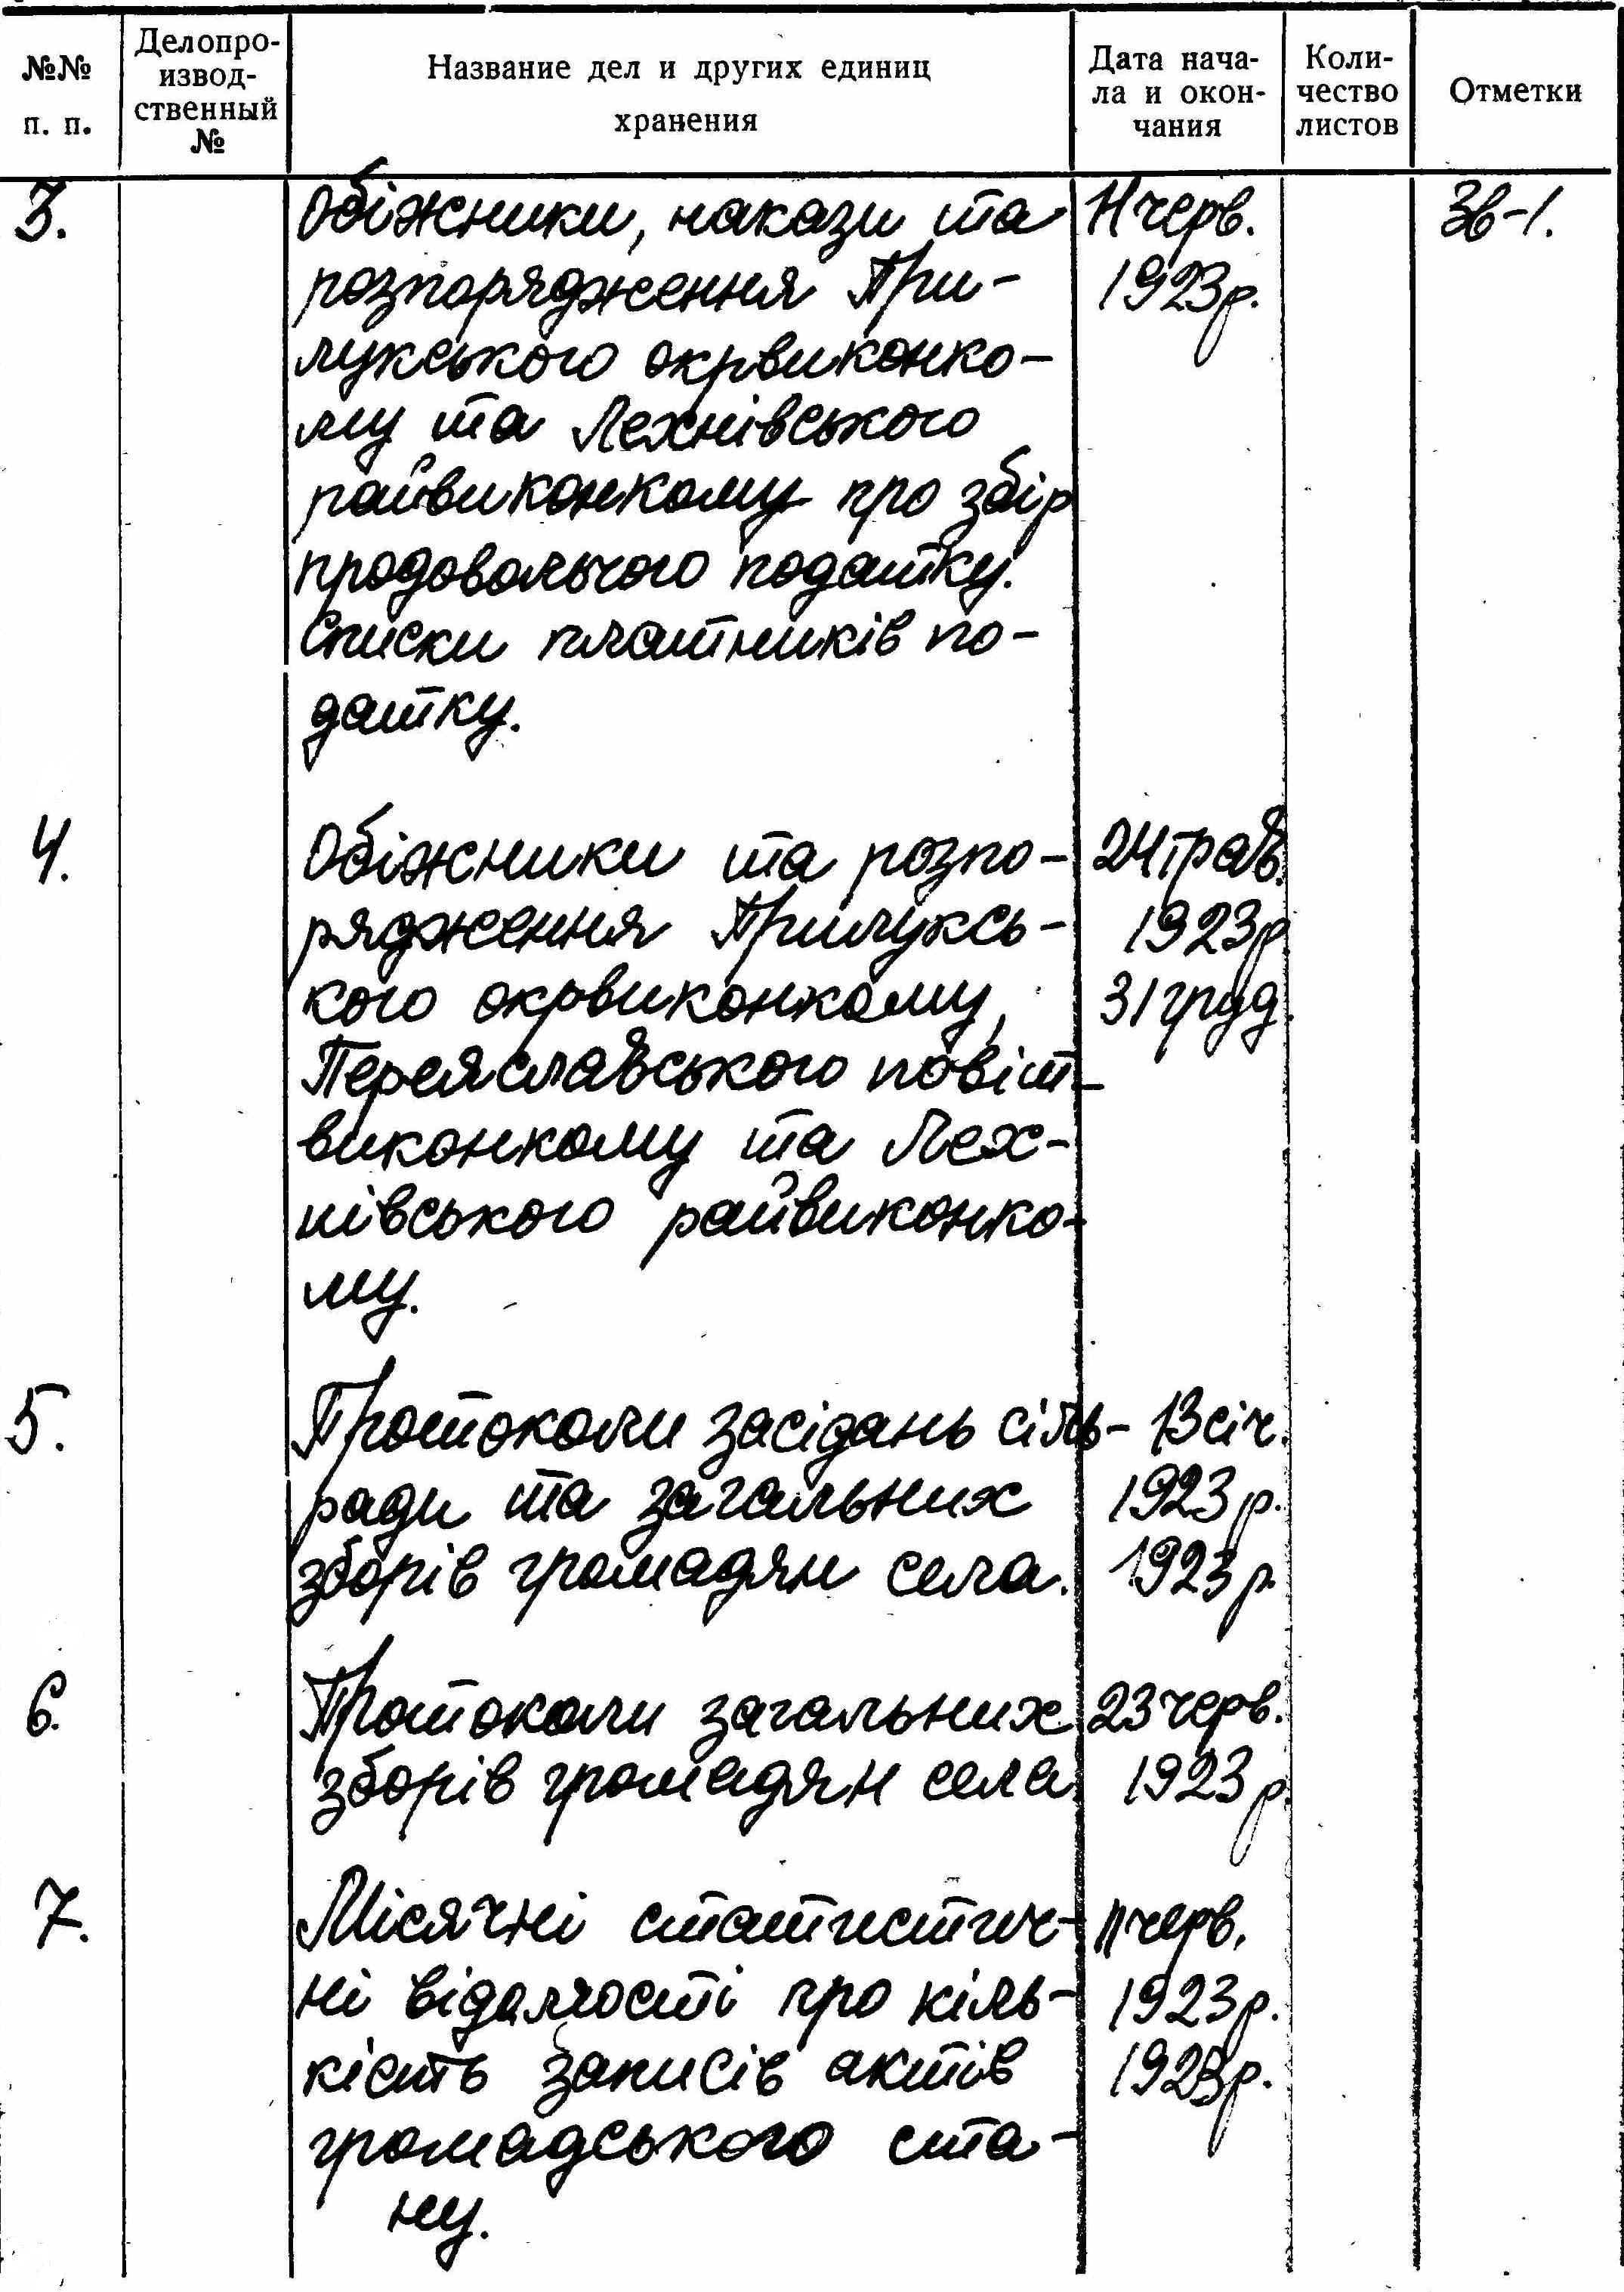 №№ п. п.
Делопро-
извод-
ственный
№
Название дел и других единиц
хранения
Дата нача-
ла и окон-
чания
Коли-
чество
листов
Отметки
3.
Обіжники, накази та
розпорядження При-
лукського окрвиконко-
му та Лехнівського
райвиконкому про збір
продовольчого податку.
Списки платників по-
датку.
11 черв.
1923р.
Зв-1.
4.
Обіжники та розпо-
рядження Прилуксь-
кого окрвиконкому,
Переяславського повіт-
виконкому та Лех-
нівського райвиконко-
му.
24 трав.
1923р
31 груд.
5.
Протоколи засідань сіль-
ради та загальних
зборів громадян села.
13 січ.
1923 р.
1923 р
6.
Протоколи загальних
зборів громадян села
23 черв.
1923 р.
7.
Місячні статистич-
ні відомості про кіль-
кість записів актів
громадського ста-
ну.
11 черв.
1923р.
1923р.